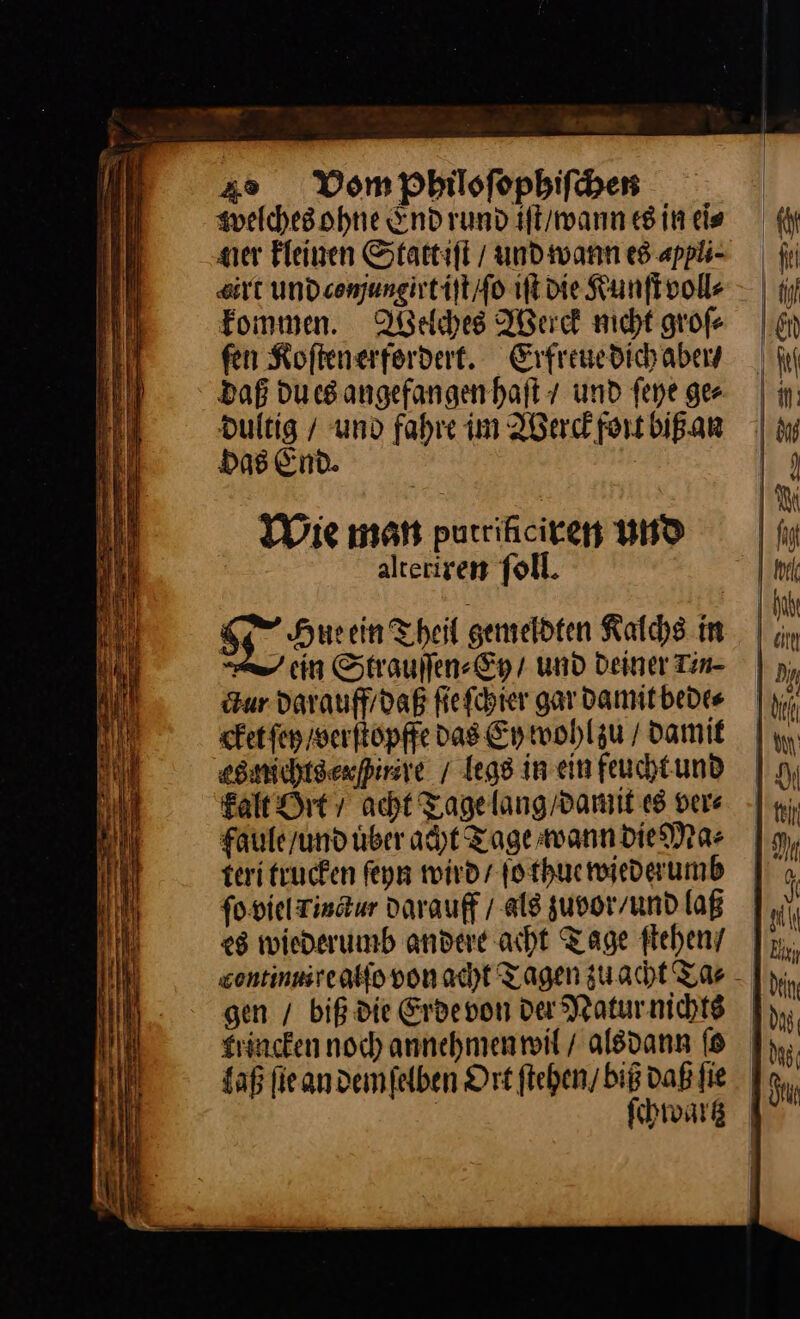 40 Vom Philoſophiſchen
welches ohne End rund iſt / wann es in ei⸗
ner kleinen Statt iſt / und wann es appli-
cirt und conjungirt iſt / ſo iſt die Kunſt voll⸗
kommen. Welches Werck nicht groſ⸗
ſen Koſten erfordert. Erfreue dich aber /
daß du es angefangen haſt / und ſeye ge⸗
dultig / und fahre im Werck fort biß an
das End.
Wie man putrificiren und
alteriren ſoll.
THue ein Theil gemeldten Kalchs in
ein Strauſſen⸗Ey / und deiner Tin-
ctur darauff / daß ſie ſchier gar damit bede⸗
cket ſey / verſtopffe das Ey wohl zu / damit
es nichts exſpirire / legs in ein feucht und
kalt Ort / acht Tage lang / damit es ver⸗
faule / und über acht Tage / wann die Ma⸗
teri trucken ſeyn wird / ſo thue wiederumb
ſo viel Tinctur darauff / als zuvor / und laß
es wiederumb andere acht Tage ſtehen /
continuire alſo von acht Tagen zu acht Ta⸗
gen / biß die Erde von der Natur nichts
trincken noch annehmen wil / alsdann ſo
laß ſie an demſelben Ort ſtehen / biß daß ſie
ſchwartz